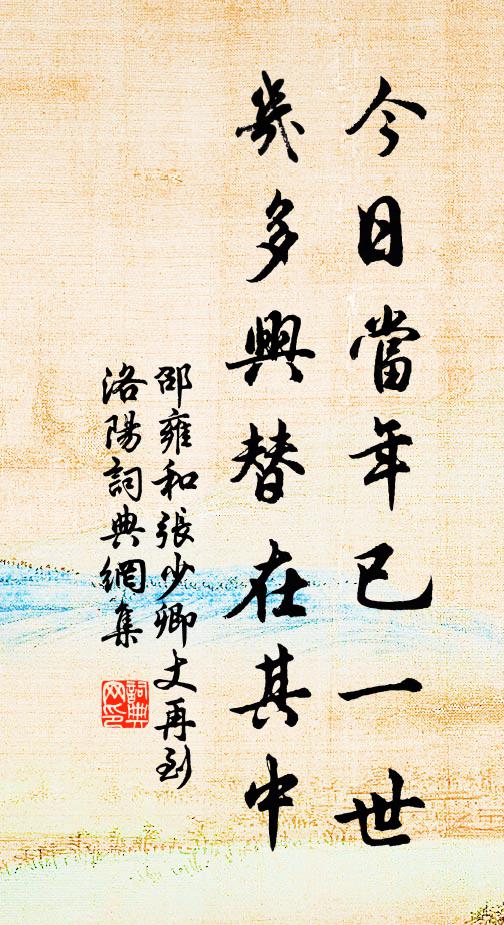 今日當年已一世
幾多興替在其中
邵雍和張少卿丈再到
洛陽詞典網集
詞典
网印